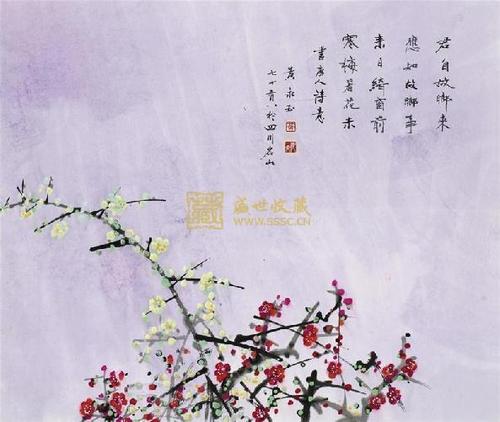 君自故鄉來
應知故鄉事
来日綺窗前
寒梅著花未
畫唐人詩意
黄永玉
於四川名山
盛世收藏
WWW.SSSC.CN